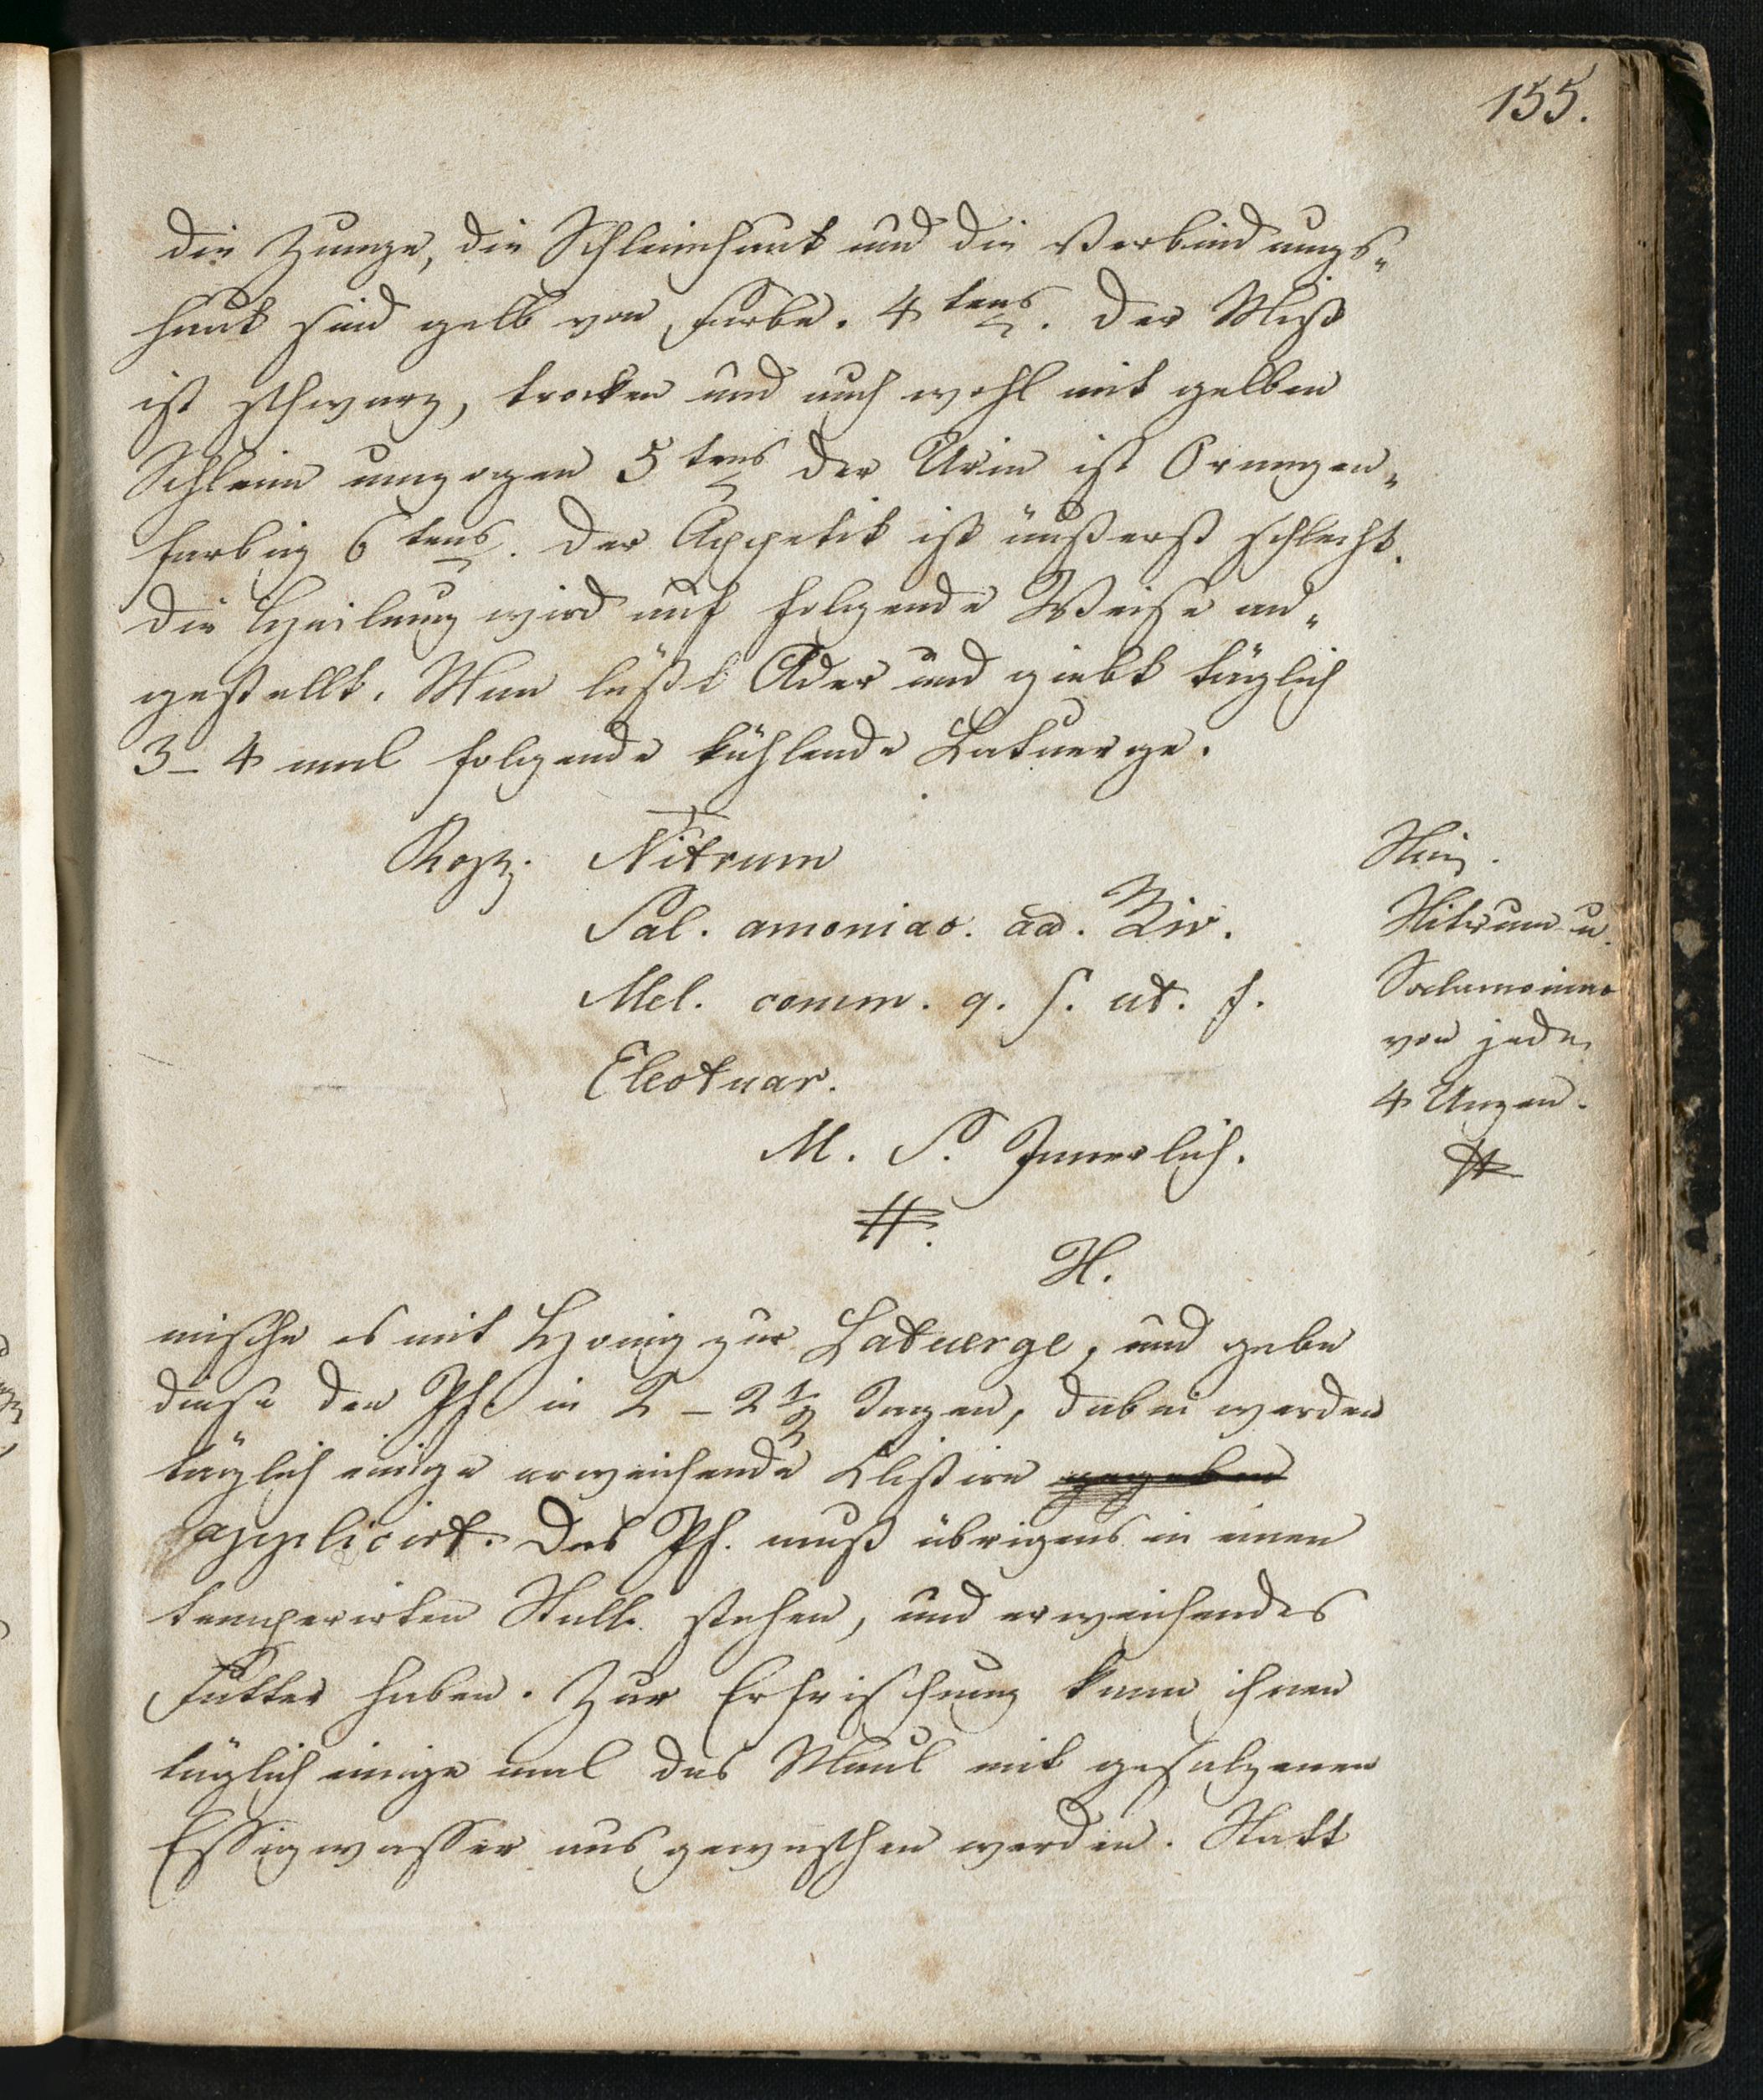 155.
die Zunge, die Schleimhaut und die Verbindungs„
haut sind gelb von Farbe. 4 tens. Der Mist
ist schwarz, trocken und auch wohl mit gelben
Schleim umzogen 5 tens der Urin ist Orangen„
farbig 6 tens. Der Appetit ist äußerst schlecht.
Die Heilung wird auf folgende Weise an„
gestellt. Man läßt Ader und giebt täglich
3 – 4 mal folgende kühlende Latuerge.
Nitrum
Sal. amoniac. aa. ℥iv.
Mel. comm. q. s. ut. f.
Electuar.
M. S. Innerlich.
#.
H.
Nim.
Nitrum u.
von jede
4 Unzen.
#
mische es mit Honig zur Latuerge, und gebe
diese den Pf. in 2 – 2 1/2 Tagen, dabei werden
täglich einige erweichende Klistire gegeben
applicirt. Das Pf. muß übrigens in einen
temperirten Stalle stehen, und erweichendes
Futter haben. Zur Erfrischung kann ihnen
täglich einige mal das Maul mit gesalzenen
Essigwasser ausgewaschen werden. Statt